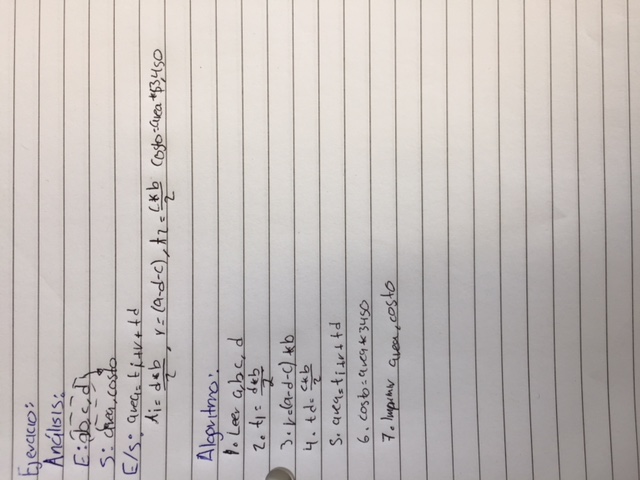 Ejercicio:
Análisis:
E: a,b,c,d
S: área, costo
E/s: area= ti+r+td
ti= d*b/2, r=(a-d-c), t2= c*b/2 costo=area*$3,450
Algoritmo:
1. Leer a,b,c, d
2. t1= d*b/2
3. r=(a-d-c)*b
4. td= c*b/2
5. area=ti+r+td
6. costo=area*3450
7. Imprimir area, costo